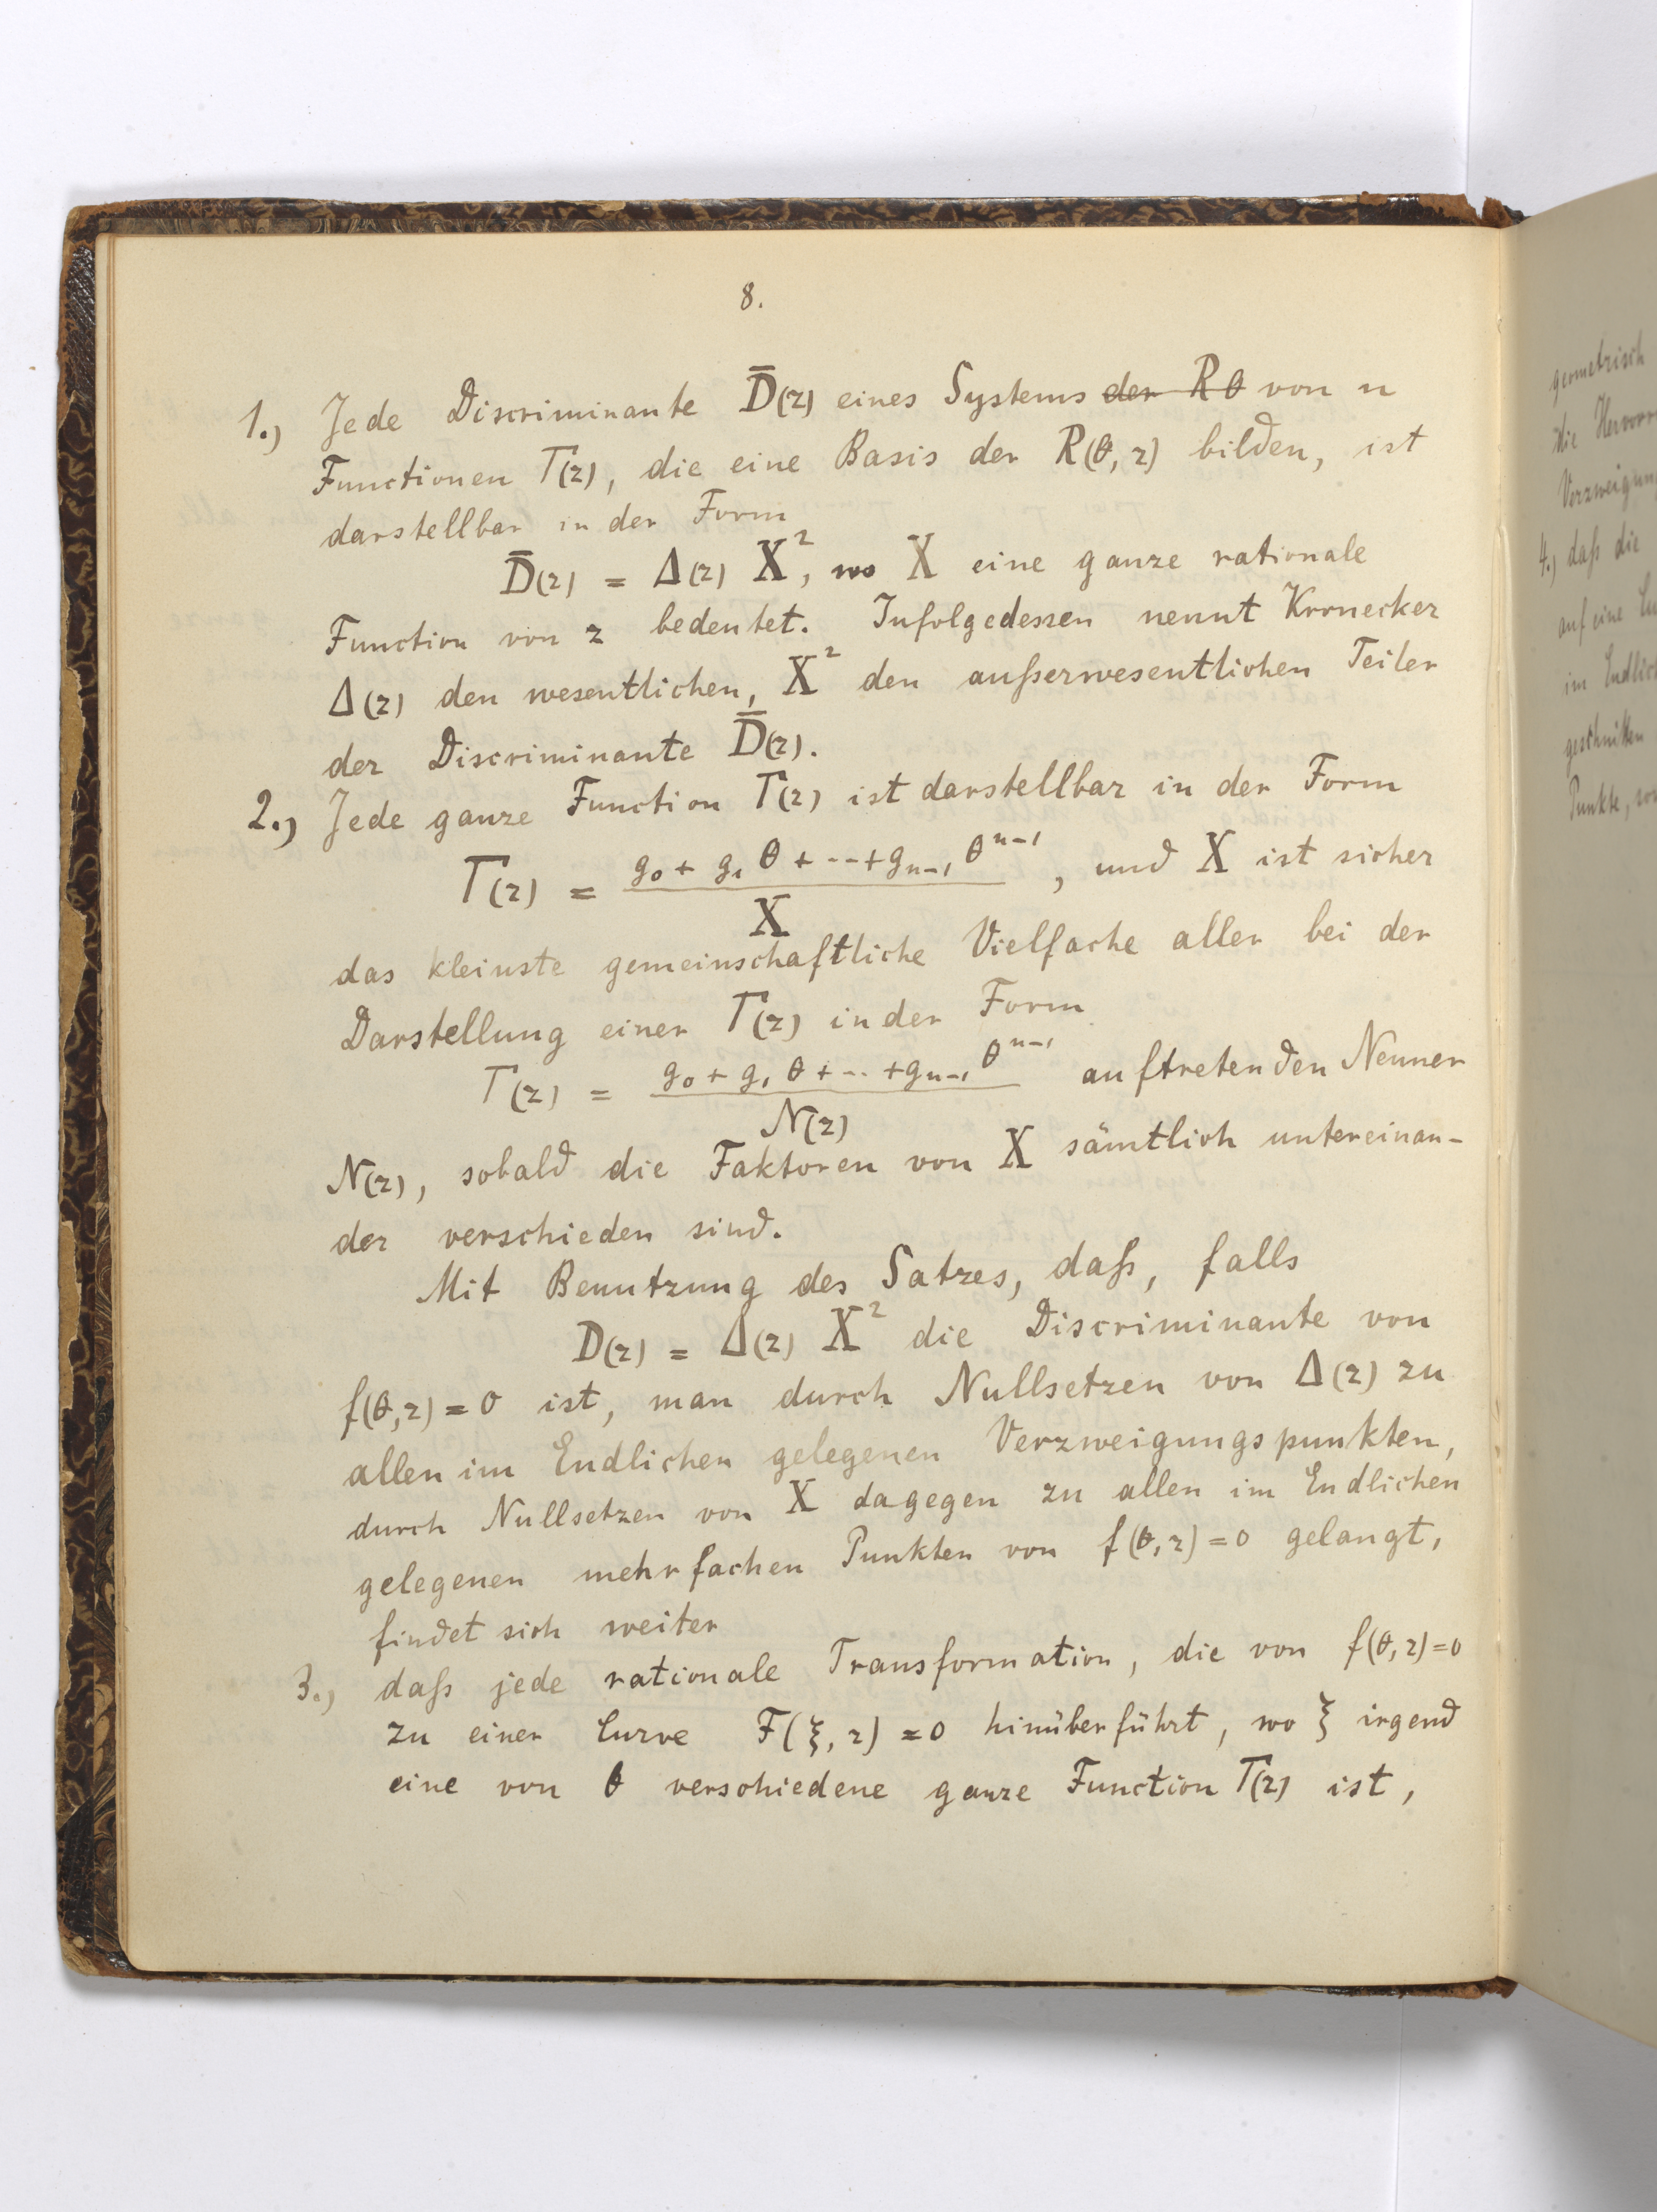 8.
1.) Jede Discriminante D̅(z) eines Systems ~~der Rθ~~ von n
Functionen T(z), die eine Basis der R(θ, z) bilden, ist
darstellbar in der Form
D̅(z) = Δ(z) X², wo X eine ganze rationale
Function von z bedeutet. Infolgedessen nennt Kronecker
Δ(z) den wesentlichen, X² den außerwesentlichen Teiler
der Discriminante D̅(z).
2.) Jede ganze Function T(z) ist darstellbar in der Form
T(z) = (g₀ + g₁ θ + --- + gₙ₋₁ θⁿ⁻¹) / X , und X ist sicher
das kleinste gemeinschaftliche Vielfache aller bei der
Darstellung einer T(z) in der Form
T(z) = (g₀ + g₁ θ + --- + gₙ₋₁ θⁿ⁻¹) / N(z) auftretenden Nenner
N(z), sobald die Faktoren von X sämtlich untereinan-
der verschieden sind.
Mit Benutzung des Satzes, daß, falls
D(z) = Δ(z) X² die Discriminante von
f(θ, z) = 0 ist, man durch Nullsetzen von Δ(z) zu
allen im Endlichen gelegenen Verzweigungspunkten,
durch Nullsetzen von X dagegen zu allen im Endlichen
gelegenen mehrfachen Punkten von f(θ, z) = 0 gelangt,
findet sich weiter
3.) daß jede rationale Transformation, die von f(θ, z) = 0
zu einer Curve F(ξ, z) = 0 hinüberführt, wo ξ irgend
eine von θ verschiedene ganze Function T(z) ist,
geometrisch
die
Verzweigun
4.) daß die
auf eine
im Endlich
geschnitten
Punkte,